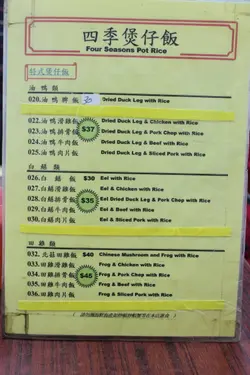 四季煲仔飯
Four Seasons Pot Rice
油鴨類
020.油鴨髀飯 30 Dried Duck Leg with Rice
022.油鴨滑雞飯 Dried Duck Leg & Chicken with Rice
023.油鴨排骨飯 $37 Dried Duck Leg & Pork Chop with Rice
024.油鴨牛肉飯 Dried Duck Leg & Beef with Rice
025.油鴨肉片飯 Dried Duck Leg & Sliced Pork with Rice
白鱔類
026.白鱔飯 $30 Eel with Rice
027.白鱔滑雞飯 Eel & Chicken with Rice
028.白鱔排骨飯 $35 Eel Dried Duck Leg & Pork Chop with Rice
029.白鱔牛肉飯 Eel & Beef with Rice
030.白鱔肉片飯 Eel & Sliced Pork with Rice
田雞類
032.北菇田雞飯 $40 Chinese Mushroom and Frog with Rice
033.田雞滑雞飯 Frog & Chicken with Rice
034.田雞排骨飯 $45 Frog & Pork Chop with Rice
035.田雞牛肉飯 Frog & Beef with Rice
036.田雞肉片飯 Frog & Sliced Pork with Rice